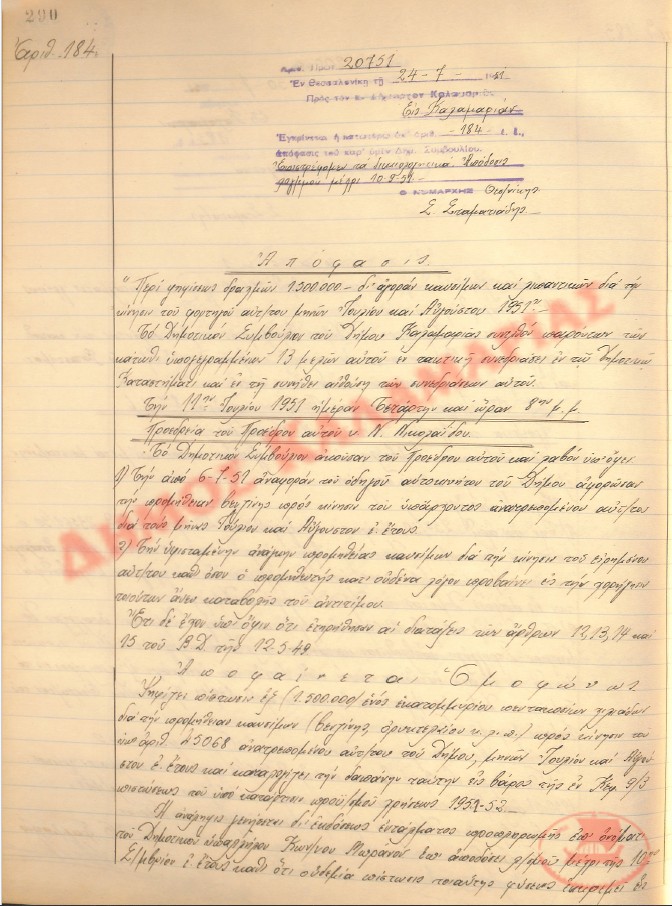 290
Ἀριθ. 184.
Ἀριθ. Πρωτ. 20751
Ἐν Θεσσαλονίκῃ τῇ 24-7-1951
Πρός τόν κ. Δήμαρχον Καλαμαριᾶς
Εἰς Καλαμαριάν
Ἐγκρίνεται ἡ κατωτέρω ὑπ' ἀριθ. 184 ἐ.ἔ.
ἀπόφασις τοῦ παρ' ὑμῖν Δημ. Συμβουλίου.
Ἐπιστρέφομεν τά δικαιολογητικά. Ἀπόδοσις
μέχρι 10-9-51.
Ὁ ΝΟΜΑΡΧΗΣ Θεσ/νίκης
Σ. Σταματιάδης
Ἀπόφασις.
"Περί ψηφίσεως δραχμῶν 1.500.000.- δι' ἀγοράν καυσίμων καί λιπαντικῶν διά τήν
κίνησιν τοῦ φορτηγοῦ αὐτ/του μηνῶν Ἰουλίου καί Αὐγούστου 1951".-
Τό Δημοτικόν Συμβούλιον τοῦ Δήμου Καλαμαριᾶς συνελθόν παρόντων τῶν
κάτωθι ὑπογεγραμμένων 13 μελῶν αὐτοῦ ἐν τακτικῇ συνεδριάσει ἐν τῷ Δημοτικῷ
Καταστήματι καί ἐν τῇ συνήθει αἰθούσῃ τῶν συνεδριάσεων αὐτοῦ.
Τήν 11ην Ἰουλίου 1951 ἡμέραν Τετάρτην καί ὥραν 8ην μ.μ.
Προεδρεία τοῦ Προέδρου αὐτοῦ κ. Ν. Νικολαΐδου.
Τό Δημοτικόν Συμβούλιον ἀκοῦσαν τοῦ Προέδρου αὐτοῦ καί λαβόν ὑπ' ὄψει
1) Τήν ἀπό 6-7-51 ἀναφοράν τοῦ ὁδηγοῦ αὐτοκινήτου τοῦ Δήμου ἀφορῶσαν
τήν προμήθειαν βενζίνης πρός κίνησιν τοῦ ὑπάρχοντος ἀνατρεπομένου αὐτ/του
διά τούς μῆνας Ἰούλιον καί Αὔγουστον ἐ. ἔτους.
2) Τήν ὑφισταμένην ἀνάγκην προμηθείας καυσίμων διά τήν κίνησιν τοῦ εἰρημένου
αὐτ/του καθ' ὅσον ὁ προμηθευτής κατ' οὐδένα λόγον προβαίνει εἰς τήν χορήγησιν
τοιούτων ἄνευ καταβολῆς τοῦ ἀντιτίμου.
Ἔτι δέ ἔχον ὑπ' ὄψιν ὅτι ἐτηρήθησαν αἱ διατάξεις τῶν ἄρθρων 12, 13, 14 καί
15 τοῦ Β.Δ. τῆς 12-5-49
Ἀποφαίνεται Ὁμοφώνως
Ψηφίζει πίστωσιν ἐξ (1.500.000) ἑνός ἑκατομμυρίου πεντακοσίων χιλιάδων
διά τήν προμήθειαν καυσίμων (βενζίνης, ὀρυκτελαίου κ.λ.π.) πρός κίνησιν τοῦ
ὑπ' ἀριθ. 45068 ἀνατρεπομένου αὐτ/του τοῦ Δήμου, μηνῶν Ἰουλίου καί Αὐγού-
στου ἐ. ἔτους καί καταλογίζει τήν δαπάνην ταύτην εἰς βάρος τῆς ἐν Κεφ. 9/3
πιστώσεως τοῦ ὑπό κατάρτισιν προϋ/σμοῦ χρήσεως 1951-52.
Ἡ ἀνάληψις γενήσεται δι' ἐκδόσεως ἐντάλματος προπληρωμῆς ἐπ' ὀνόματι
τοῦ Δημοτικοῦ ὑπαλλήλου Κων/νου ἐπί ἀποδόσει λ/σμοῦ μέχρι τῆς 10ης
Σ/μβρίου ἐ. ἔτους καθ' ὅτι οὐδεμία πίστωσις τοιαύτης φύσεως ἐκκρεμεῖ εἰς
ΔΗΜΟΣ ΚΑΛΑΜΑΡΙΑΣ